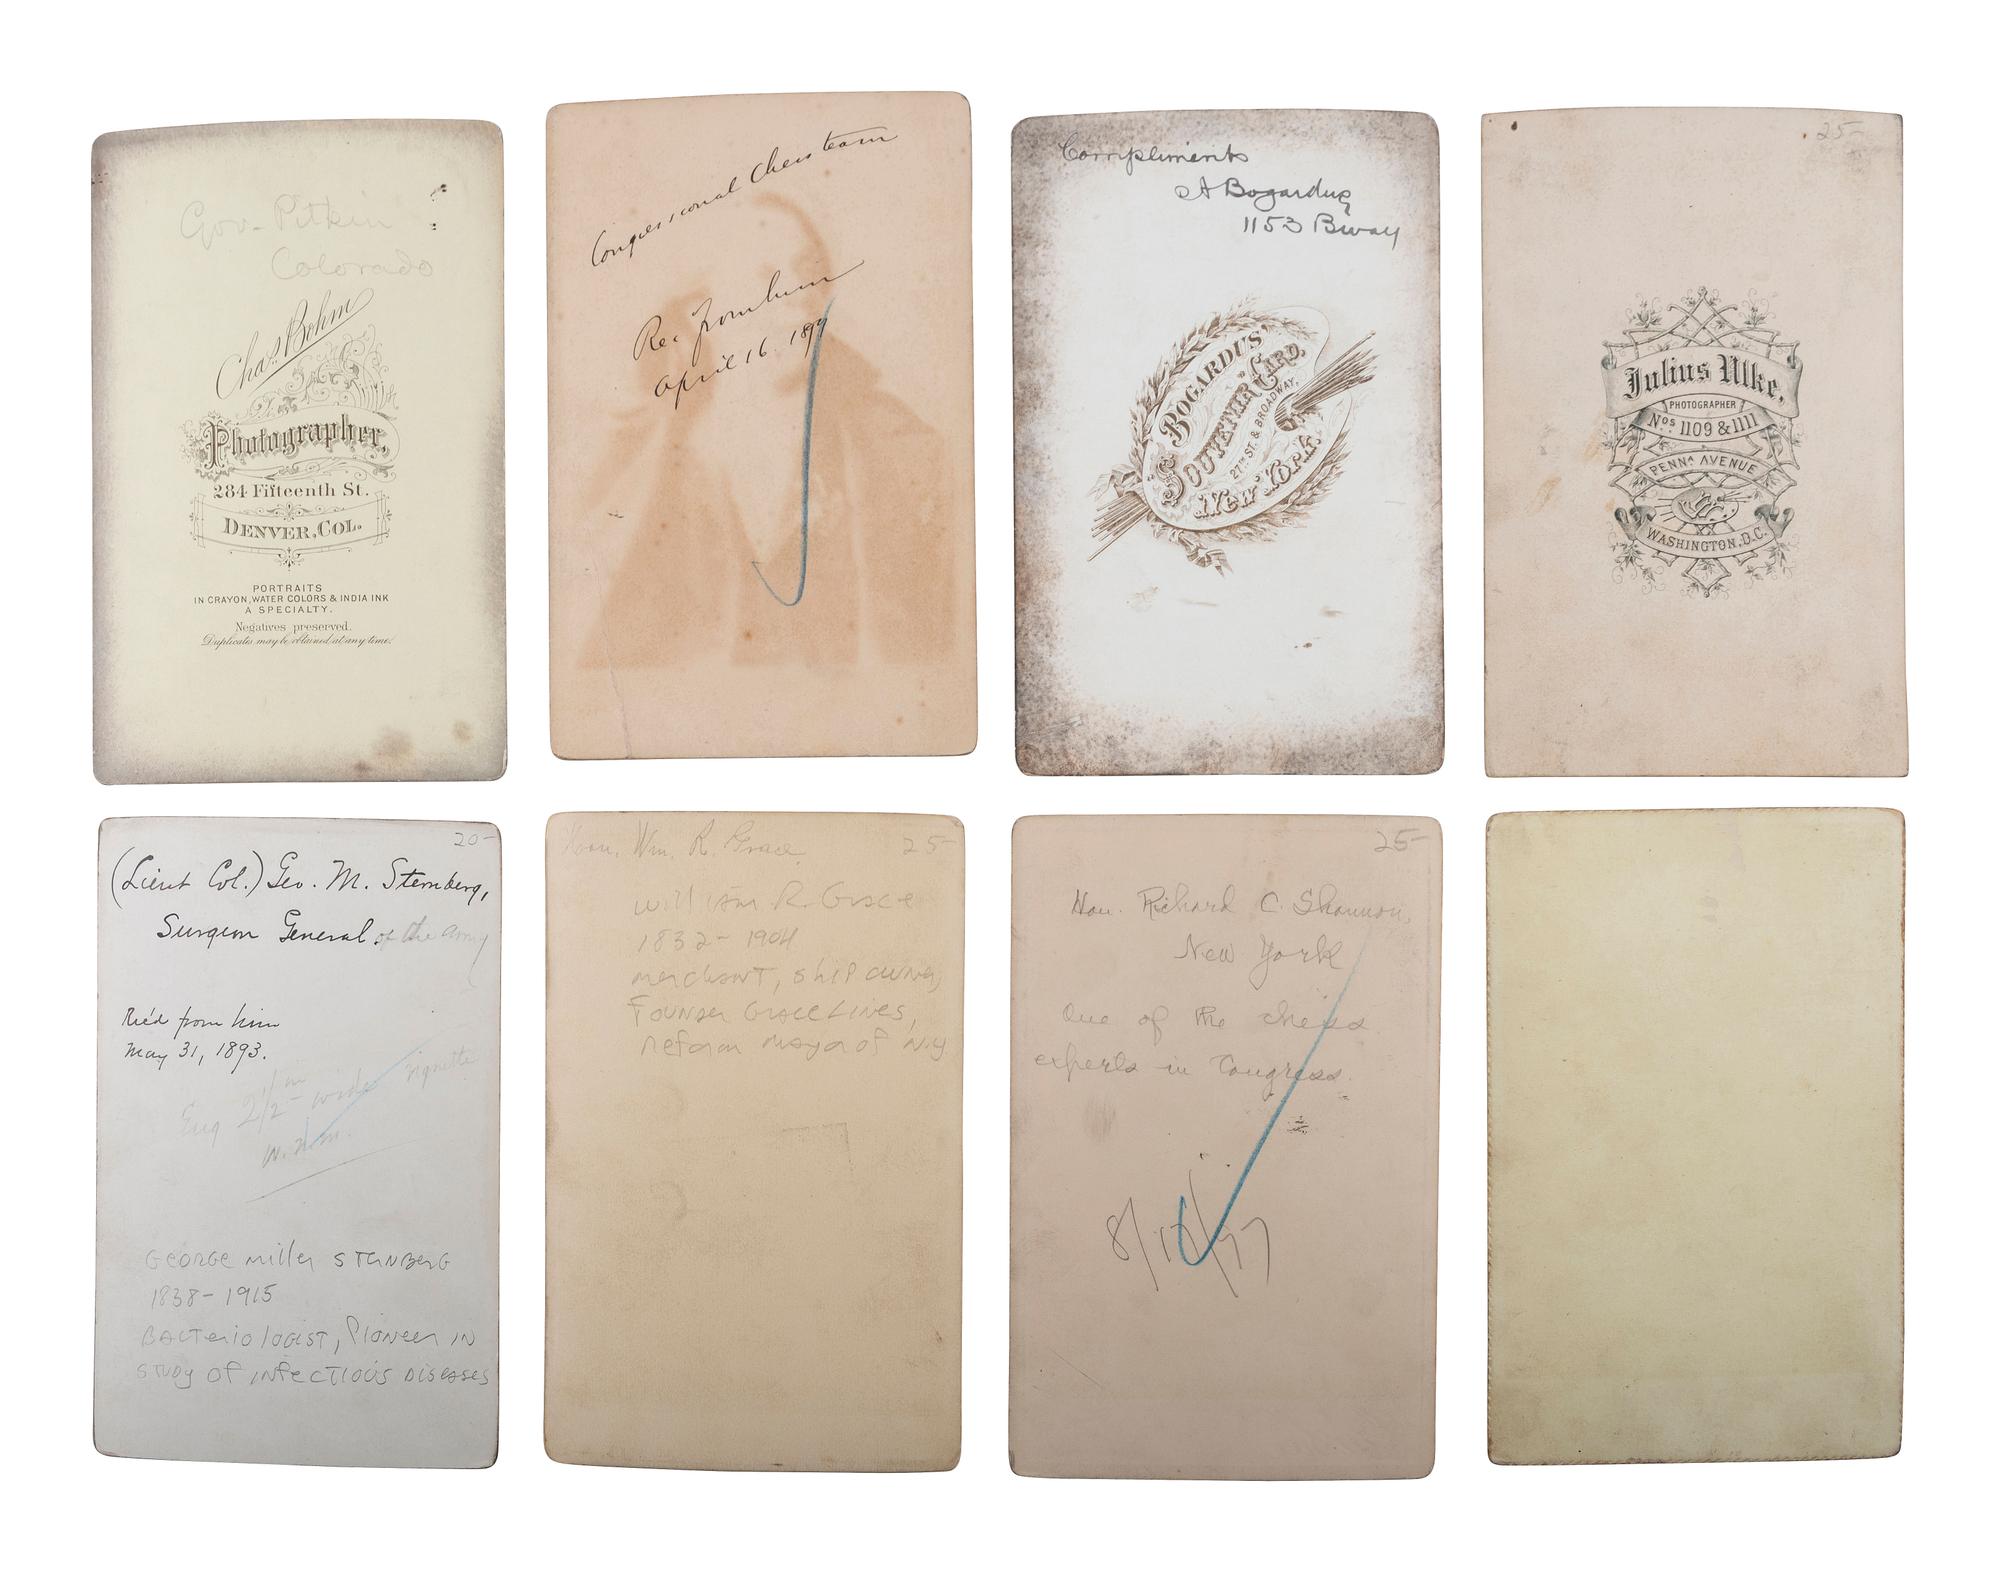 Gov. Pitkin
Colorado
Chas. Bohm
Photographer,
284 Fifteenth St.
DENVER, COL.
PORTRAITS
IN CRAYON, WATER COLORS & INDIA INK
A SPECIALTY.
Negatives preserved.
Duplicates may be obtained at any time.
Congressional Chess team
Rec from him
April 16. 1897
Compliments
A Bogardus
1153 Bway
BOGARDUS'
SOUVENIR CARD,
27TH ST. & BROADWAY,
New York.
25-
Julius Ulke,
PHOTOGRAPHER
Nos 1109 & 1111
PENNA AVENUE
WASHINGTON, D.C.
20-
(Lieut Col.) Geo. M. Sternberg,
Surgeon General of the army
Rec'd from him
May 31, 1893.
Eng 2 1/2 in wide vignette
GEORGE miller STERNBERG
1838-1915
BACTERIOLOGIST, PIONEER IN
STUDY OF INFECTIOUS DISEASES
Hon. Wm. R. Grace 25-
William R. Grace
1832-1904
merchant, ship owner,
Founder Grace Lines,
reform mayor of N.Y
25-
Hon. Richard C. Shannon,
New York
One of the chess
experts in Congress.
8/17/97